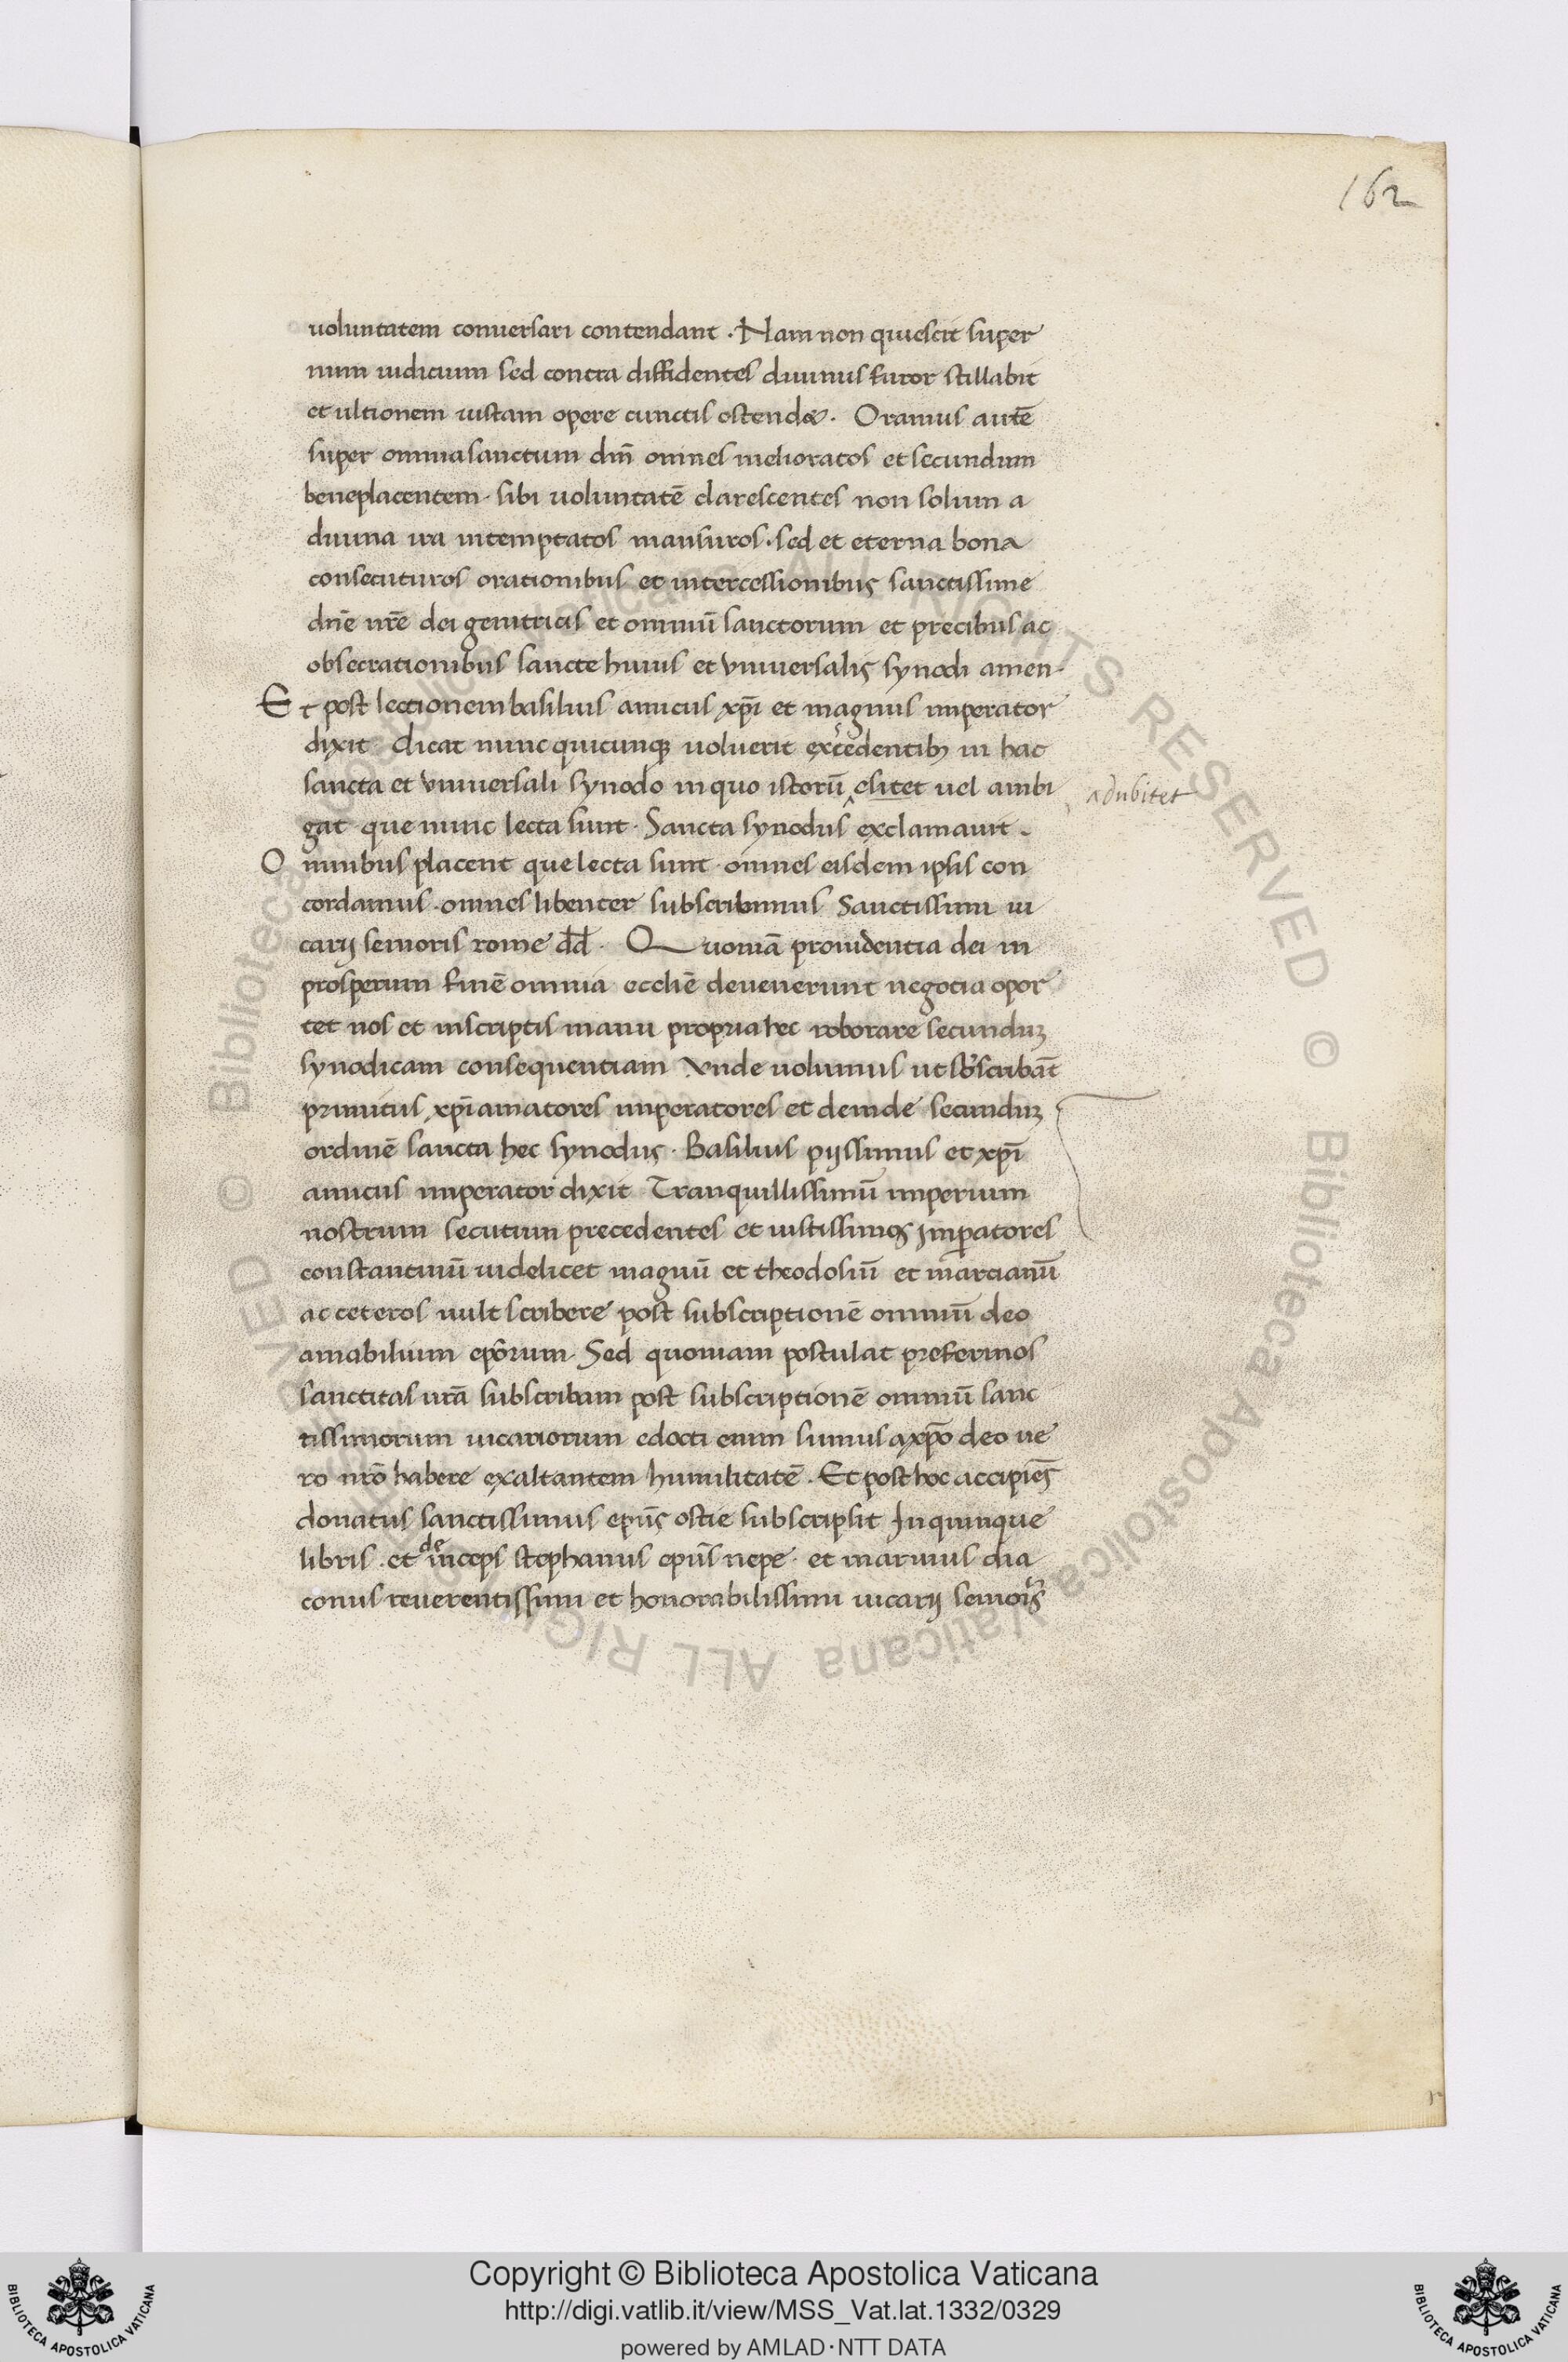 162
uoluntatem conuersari contendant · Nam non quiescit super
num iudicium sed contra diffidentes diuinus furor stillabit
et ultionem iustam opere cunctis ostendet. Oramus autē
super omnia sanctum dn̄m omnes melioratos et secundum
beneplacentem · sibi uoluntatē clarescentes non solum a
diuina ira intemptatos mansuros · sed et eterna bona
consecuturos orationibus et intercessionibus sanctissime
dn̄e nr̄e dei genitricis et omniū sanctorum et precibus ac
obsecrationibus sancte huius et vniuersalis synodi amen ·
Et post lectionem basilius amicus xp̄i et magnus imperator
dixit · dicat nunc quicunqꝫ uoluerit excedentibꝫ in hac
sancta et vniuersali synodo in quo istorū ^ esitet uel ambi
adubitet
gat que nunc lecta sunt · Sancta synodus exclamauit ·
Omnibus placent que lecta sunt · omnes eisdem ipsis con
cordamus · omnes libenter subscribimus Sanctissimi ui
carij senioris rome d̄d̄ · Quoniā prouidentia dei in
prosperum finē omnia ecclīe deuenerunt negotia opor
tet nos et inscriptis manu propria hec roborare secunduꝫ
synodicam consequentiam vnde uolumus ut sb̄scribāt
primitus xp̄i amatores imperatores et deinde secunduꝫ
ordinē sancta hec synodus · Basilius pijssimus et xp̄i
amicus imperator dixit Tranquillissimū imperium
nostrum secutum precedentes et iustissimos imꝑatores
constantinū uidelicet magnū et theodosiū et marcianū
ac ceteros uult scribere post subscriptionē omniū deo
amabilium ep̄orum · Sed quoniam postulat prefermos
sanctitas ur̄a subscribam post subscriptionē omniū sanc
tissimorum uicariorum edocti enim sumus a xp̄o deo ue
ro nr̄o habere exaltantem humilitatē · Et post hoc accipiēs
donatus sanctissimus ep̄us ostie subscripsit In quinque
libris · et deinceps stephanus ep̄us nepe · et marinus dia
conus reuerentissimi et honorabilissimi uicarij senioris
Copyright © Biblioteca Apostolica Vaticana
http://digi.vatlib.it/view/MSS_Vat.lat.1332/0329
powered by AMLAD·NTT DATA